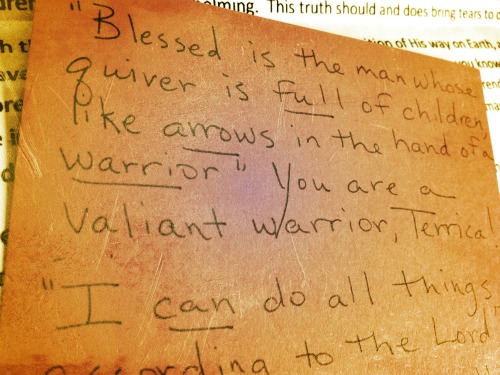 elming. This truth should and does bring tears to
of His way on Earth,
you know
"Blessed is the man whose
quiver is full of children,
like arrows in the hand of a
warrior" You are a
Valiant warrior, Terrica!
"I can do all things
according to the Lord"